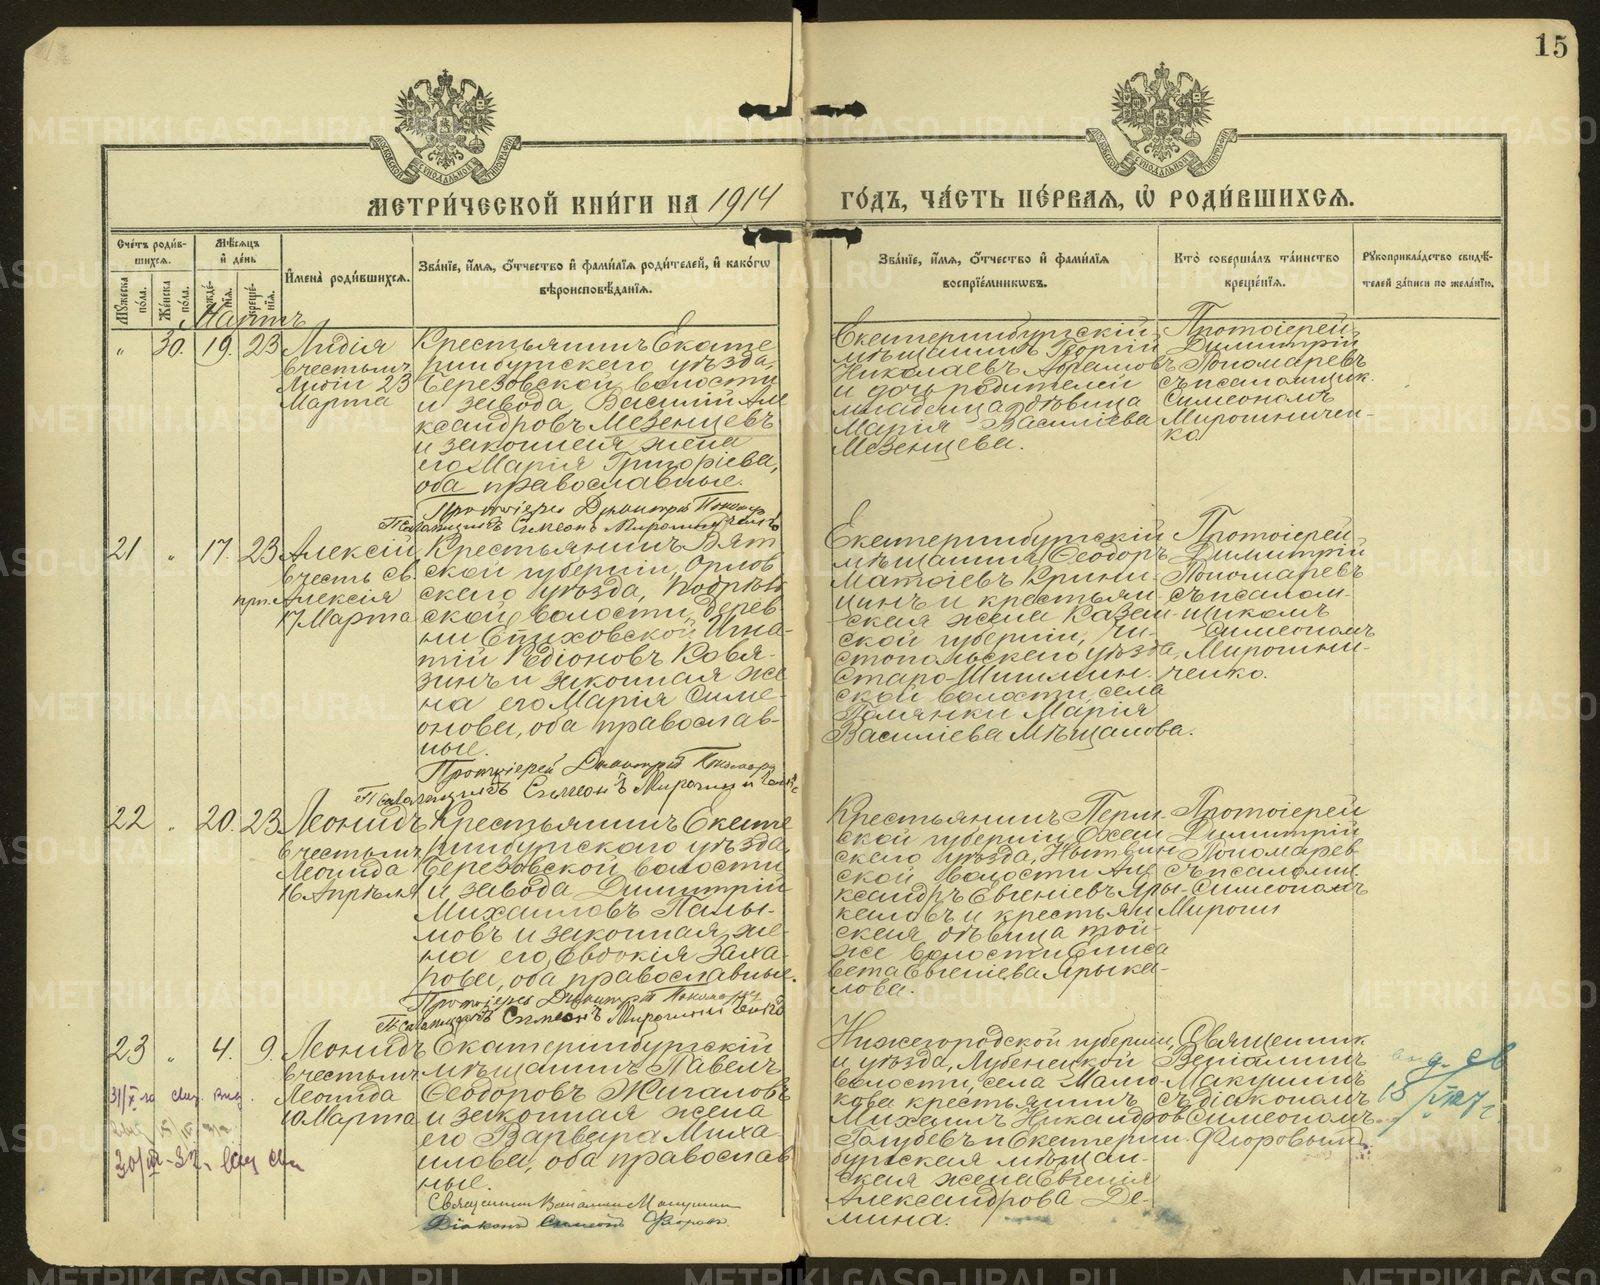 15
МЕТРИ́ЧЕСКОЙ КНИ́ГИ НА 1914 ГО́ДЪ, ЧА́СТЬ ПЕ́РВАѦ, Ѡ РОДИ́ВШИХСѦ.
Сче́тъ роди́вшихсѧ.
Мꙋ́жеска по́ла.
Же́нска по́ла.
Мѣ́сѧцъ и҆ де́нь
рожде́нїѧ.
креще́нїѧ.
И҆мена̀ роди́вшихсѧ.
Зва́нїе, и҆́мѧ, ѻ҆́тчество и҆ фами́лїѧ роди́телей, и҆ како́гѡ
вѣроисповѣ́данїѧ.
Зва́нїе, и҆́мѧ, ѻ҆́тчество и҆ фами́лїѧ
воспрїе́мникѡвъ.
Кто̀ соверша́лъ та́инство
креще́нїѧ.
Рꙋкоприкла́дство свидѣ́-
телей за́писи по жела́нїю.
Мартъ
" 30. 19. 23
Лидія
въ честь м.
Лидіи 23
Марта
Крестьянинъ Екате
ринбургскаго уѣзда,
Березовской волости
и завода Василій Але
ксандровъ Мезенцевъ
и законная жена
его Марія Григоріева,
оба православные.
Протоіерей Димитрій Пономар
Псаломщикъ Симеонъ Мирошниченко
Екатеринбургскій
мѣщанинъ Георгій
Николаевъ Абрамовъ
и дочь родителей
младенца дѣвица
Марія Василіева
Мезенцева.
Протоіерей
Димитрій
Пономаревъ
съ псаломщик.
Симеономъ
Мирошничен-
ко
21 " 17. 23
Алексій
въ честь св.
прп. Алексія
17 Марта
Крестьянинъ Вят
ской губерніи, Орлов
скаго уѣзда,
ской волости, дерев
ни Епиховской Игна-
тій Родіоновъ Ковя-
зинъ и законная же
на его Марія Симе-
онова, оба православ-
ные.
Протоіерей Димитрій Пономар
Псаломщикъ Симеонъ Мирошниченко
Екатеринбургскій
мѣщанинъ Ѳеодоръ
Матѳіевъ Крини-
цинъ и крестьян-
ская жена Казан-
ской губерніи, Чи-
стопольскаго уѣзда,
Старо-
ской волости, села
Полянки Марія
Василіева Мѣщанова.
Протоіерей
Димитрій
Пономаревъ
съ псалом-
щикомъ
Симеономъ
Мирошни-
ченко.
22 " 20. 23
Леонидъ
въ честь м.
Леонида
16 Апрѣля
Крестьянинъ Екате
ринбургскаго уѣзда,
Березовской волости
и завода Димитрій
Михаиловъ Палы-
мовъ и законная же-
на его, Евдокія Заха-
рова, оба православные.
Протоіерей Димитрій Пономарев
Псаломщикъ Симеонъ Мирошниченко
Крестьянинъ Перм-
ской губерніи Охан
скаго уѣзда, Нытвин
ской волости Але
ксандръ Евгеніевъ Яры-
каловъ и крестьян
ская дѣвица той-
же волости Елиса
вета Евгеніева Ярыка-
лова.
Протоіерей
Димитрій
Пономарев
съ псаломщ.
Симеономъ
Мирошн
23 " 4. 9.
Леонидъ
въ честь м.
Леонида
10 Марта
Екатеринбургскій
мѣщанинъ Павелъ
Ѳеодоровъ Жигаловъ
и законная жена
его Варвара Миха-
илова, оба православ
ные.
Священникъ Веніаминъ Макушинъ
Діаконъ Симеонъ Флоров
Нижегородской губерніи,
и уѣзда, Лубенецкой
волости, села Малю-
кова крестьянинъ
Михаилъ Никандров
Голубевъ и Екатерин-
бургская мѣщан-
ская жена Евгенія
Александрова Де-
мина.
Священник
Веніаминъ
Макушинъ
съ діакономъ
Симеономъ
Флоровым